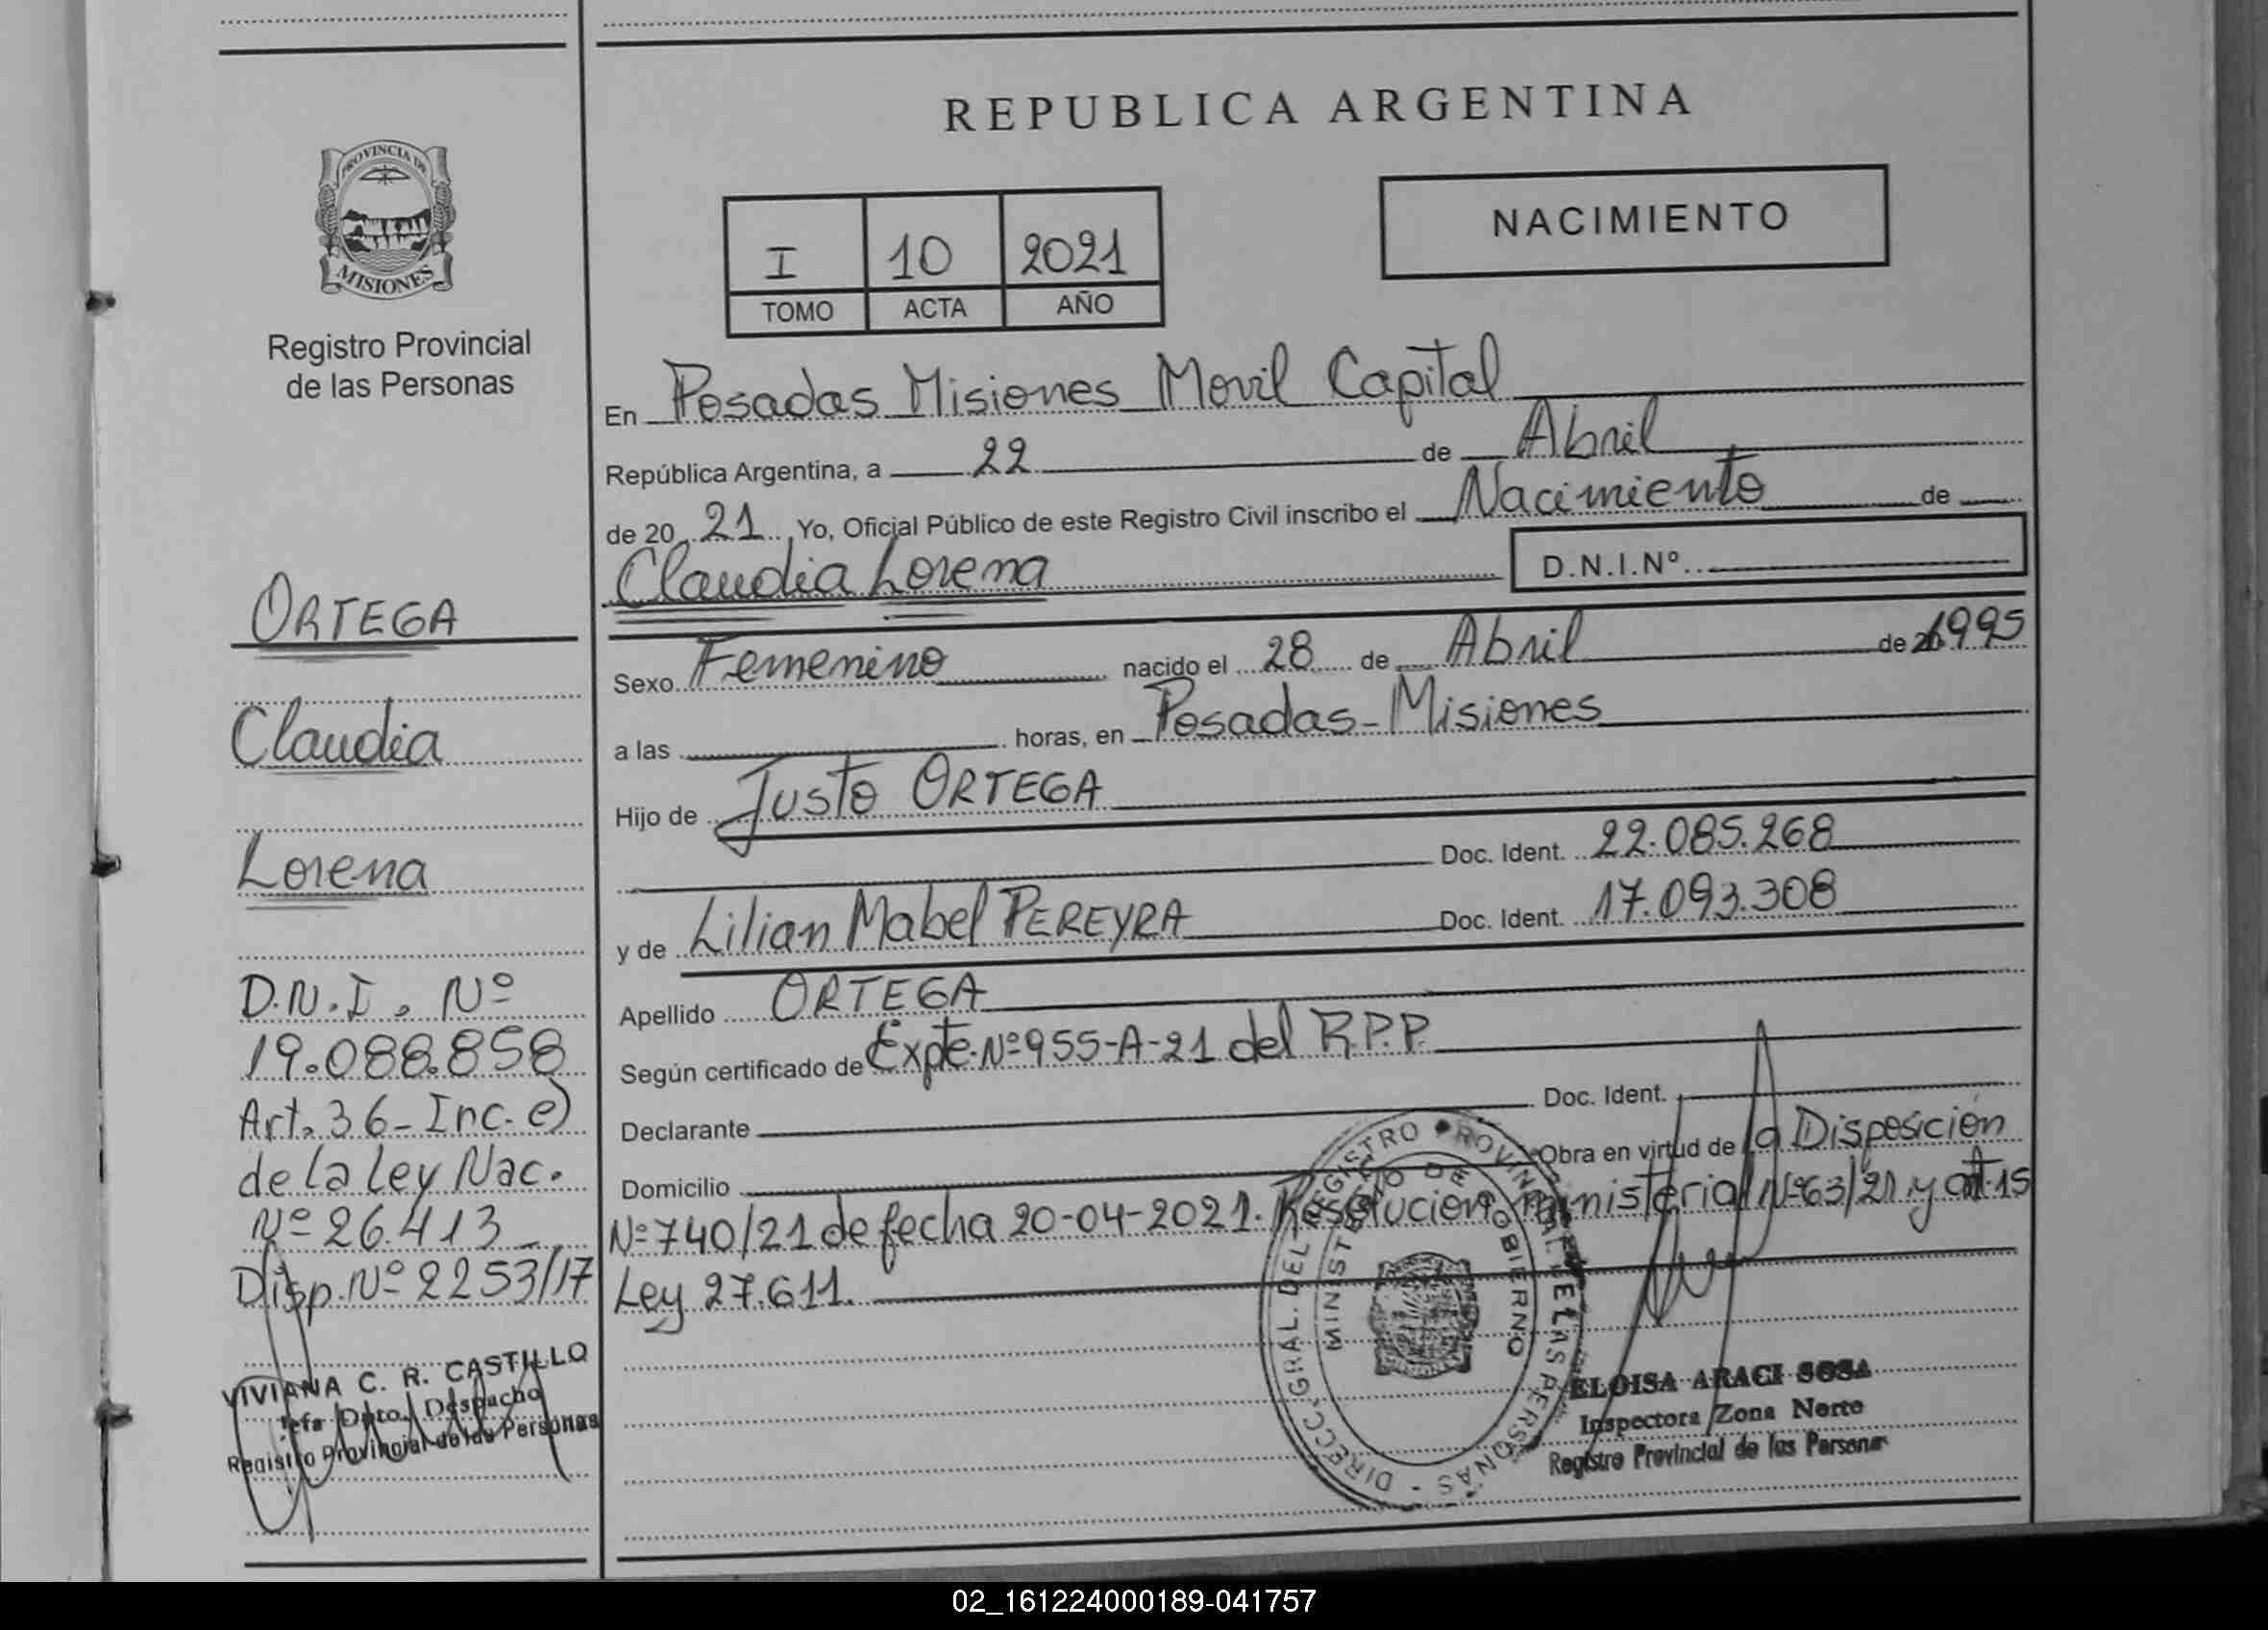 REPUBLICA ARGENTINA
PROVINCIA DE
MISIONES
Registro Provincial
de las Personas
I 10 2021
TOMO ACTA AÑO
NACIMIENTO
En Posadas Misiones Movil Capital
República Argentina, a 22 de Abril
de 20 21 Yo, Oficial Público de este Registro Civil inscribo el Nacimiento de
Claudia Lorena D.N.I.Nº
Sexo Femenino nacido el 28 de Abril de 1995
a las horas, en Posadas-Misiones
Hijo de Justo ORTEGA
Doc. Ident. 22.085.268
y de Lilian Mabel PEREYRA Doc. Ident. 17.093.308
Apellido ORTEGA
Según certificado de Expte.Nº955-A-21 del R.P.P.
Declarante Doc. Ident.
Domicilio Obra en virtud de la Disposición
Nº740/21 de fecha 20-04-2021. Resolucion ministerial Nº63/21 y art 15
Ley 27.611.
ORTEGA
Claudia
Lorena
D.N.I. Nº
19.088.858
Art. 36-Inc. e)
de la Ley Nac.
Nº 26.413
Disp. Nº 2253/17
VIVIANA C. R. CASTILLO
Jefa Dpto. Despacho
Registro Provincial de las Personas
DIRECC. GRAL. DEL REGISTRO PROVINCIAL DE LAS PERSONAS
MINISTERIO DE GOBIERNO
ELOISA ARACI SOSA
Inspectora Zona Norte
Registro Provincial de las Personas
02_161224000189-041757